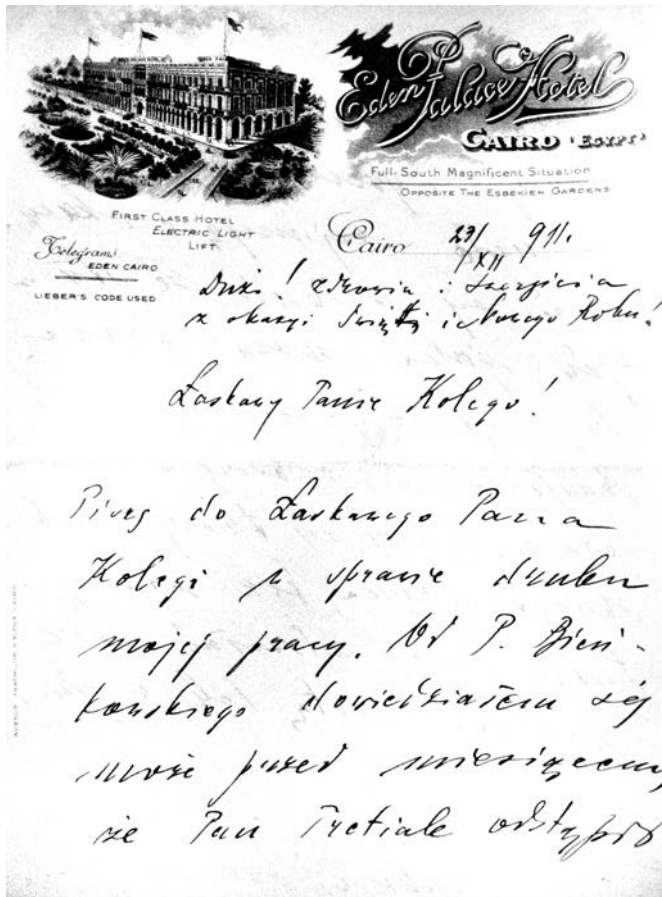 Eden Palace Hotel
CAIRO (EGYPT)
Full-South Magnificent Situation
OPPOSITE THE ESBEKIEH GARDENS
FIRST CLASS HOTEL
ELECTRIC LIGHT
LIFT
Telegrams
EDEN CAIRO
LIEBER'S CODE USED
Cairo 23/XII 911.
Dużo! zdrowia i szczęścia
z okazyi Świąt i Nowego Roku!
Łaskawy Panie Kolego!
Piszę do Łaskawego Pana
Kolegi w sprawie druku
mojej pracy. Od P. Bień-
kowskiego dowiedziałem się
może przed miesiącem,
że Pan odstąpił